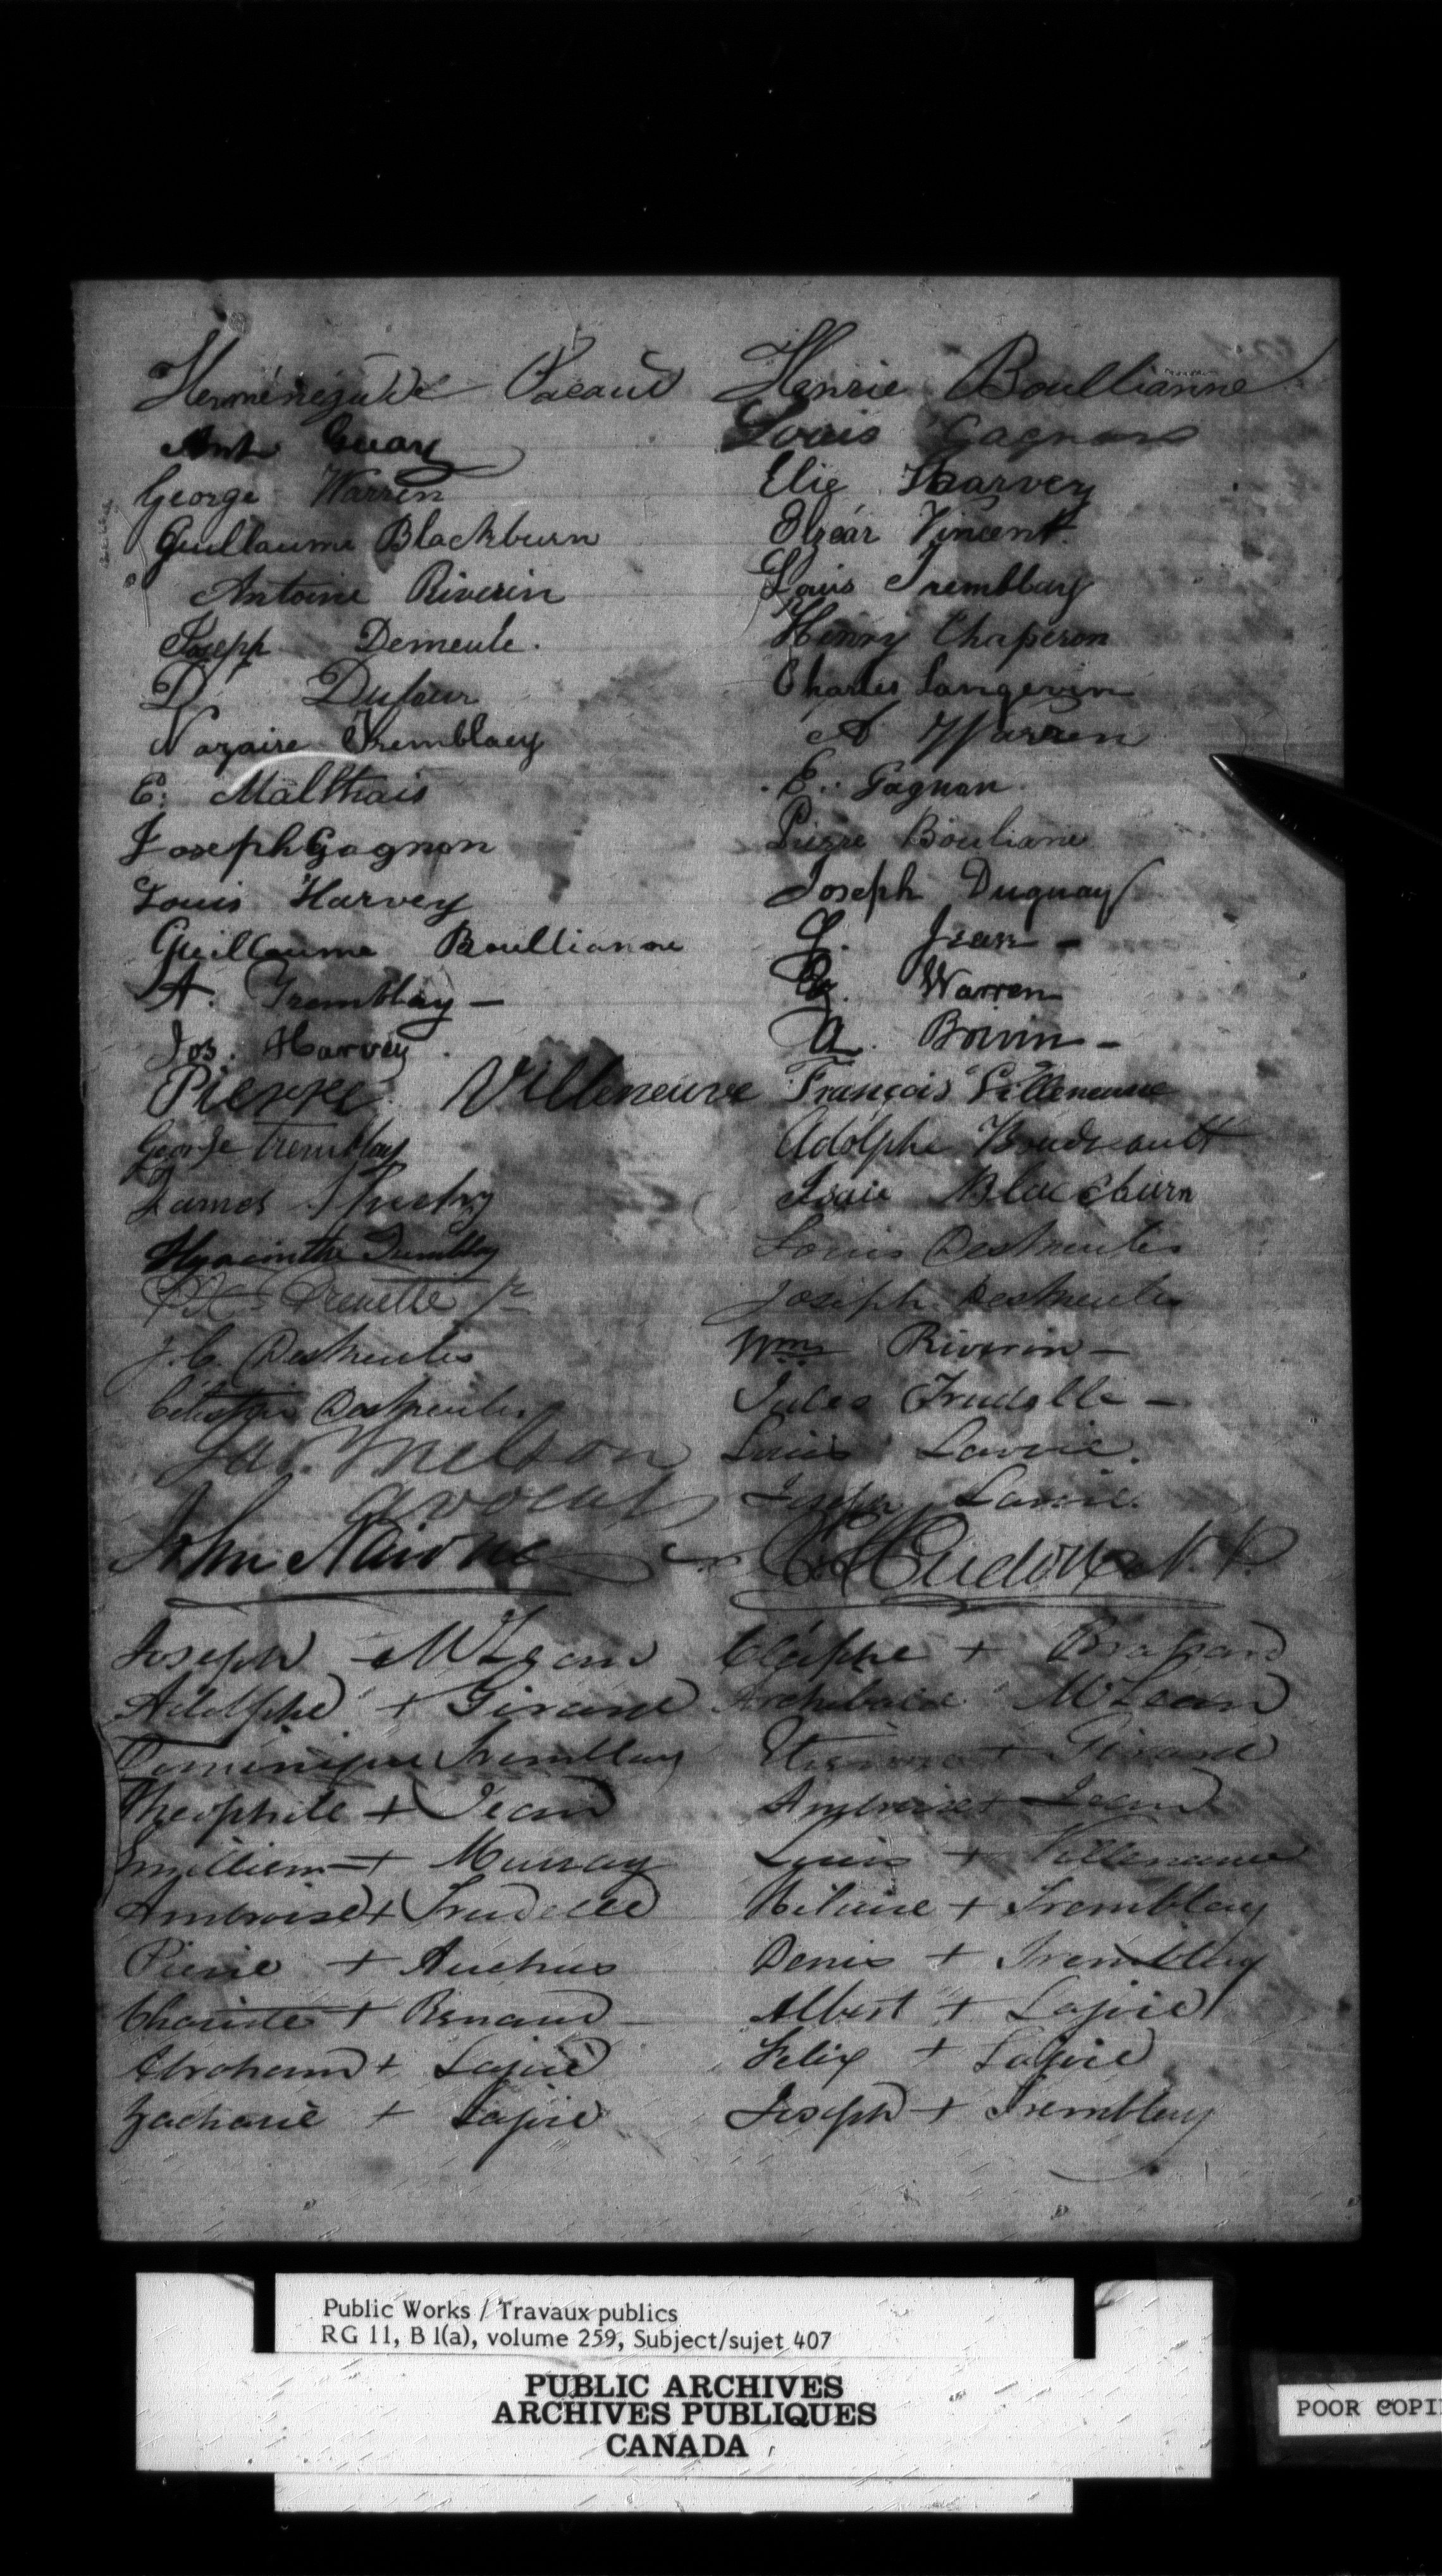 Herménégilde Pacaud Henrie Boullianne
Ant Guay Louis Gagnon
George Warren Elie Harvey
Guillaume Blackburn Elzéar Vincent
Antoine Riverin Louis Tremblay
Joseph Demeule. Henry Chaperon
D Dufour Charles Langevin
Nazaire Tremblay A Warren
E: Malthais E. Gagnon
Joseph Gagnon Pierre Bouliane
Louis Harvey Joseph Duguay
Guillaume Boullianne Jean -
A. Tremblay - Warren
Jos. Harvey. A. Boivin -
Pierre Villeneuve François Villeneuve
George Tremblay Adolphe Boudreault
James Isaie Blackburn
Hyacinthe Tremblay Louis Desmeules
Jr Joseph Desmeules
J.C. Desmeules Wm Riverin -
Célestin Desmeules Jules Trudelle -
Jas. Nelson Louis Lavoie.
avocat Joseph Lavoie.
John Nairne Hudon N.P.
Joseph McLean Cléophe + Brassard
Adolphe + Girard Archibald McLean
Dominique Tremblay Etienne + Girard
Theophile + Jean Ambroise + Jean
+ Murray Louis + Villeneuve
Ambroise + Trudelle Hilaire + Tremblay
Pierre + Denis + Tremblay
+ Renaud - Albert + Lajoie
Abraham + Lajoie Felix + Lajoie
Zacharie + Lajoie Joseph + Tremblay
Public Works / Travaux publics
RG 11, B 1(a), volume 259, Subject/sujet 407
PUBLIC ARCHIVES
ARCHIVES PUBLIQUES
CANADA
POOR COPI